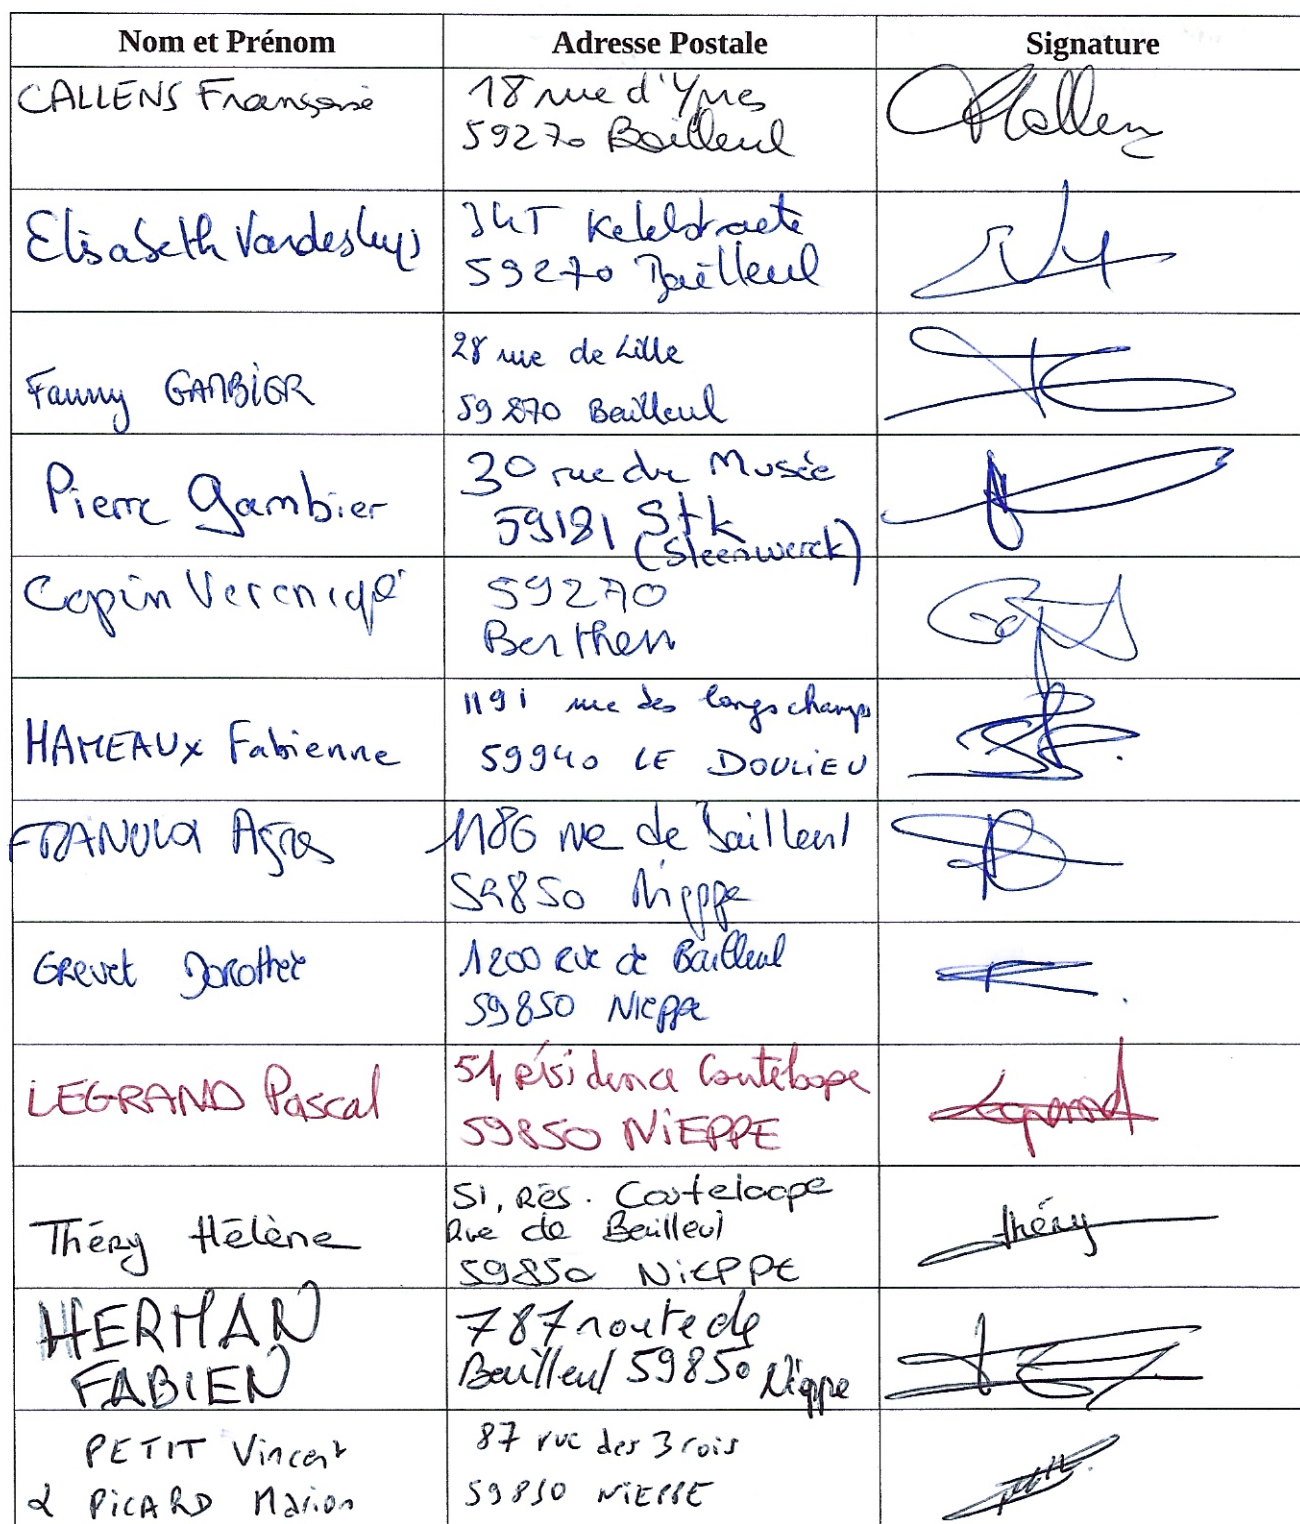 Nom et Prénom
Adresse Postale
Signature
CALLENS Françoise
18 rue d'Ypres
59270 Bailleul
Elisabeth
59270 Bailleul
Fanny GAMBIER
28 rue de Lille
59270 Bailleul
Pierre Gambier
30 rue du Musée
59181 Stk
(Steenwerck)
Copin
59270
Berthen
HAMEAUX Fabienne
1191 rue des longs champs
59940 LE DOULIEU
1186 rue de Bailleul
59850 Nieppe
Grevet Dorothée
1200 Rue de Bailleul
59850 Nieppe
LEGRAND Pascal
51, résidence
59850 NIEPPE
Legrand
Théry Hélène
51, Rés.
Rue de Bailleul
59850 NIEPPE
théry
HERMAN
FABIEN
787 route de
Bailleul 59850 Nieppe
PETIT Vincent
& PICARD Marion
87 rue des 3 rois
59850 NIEPPE